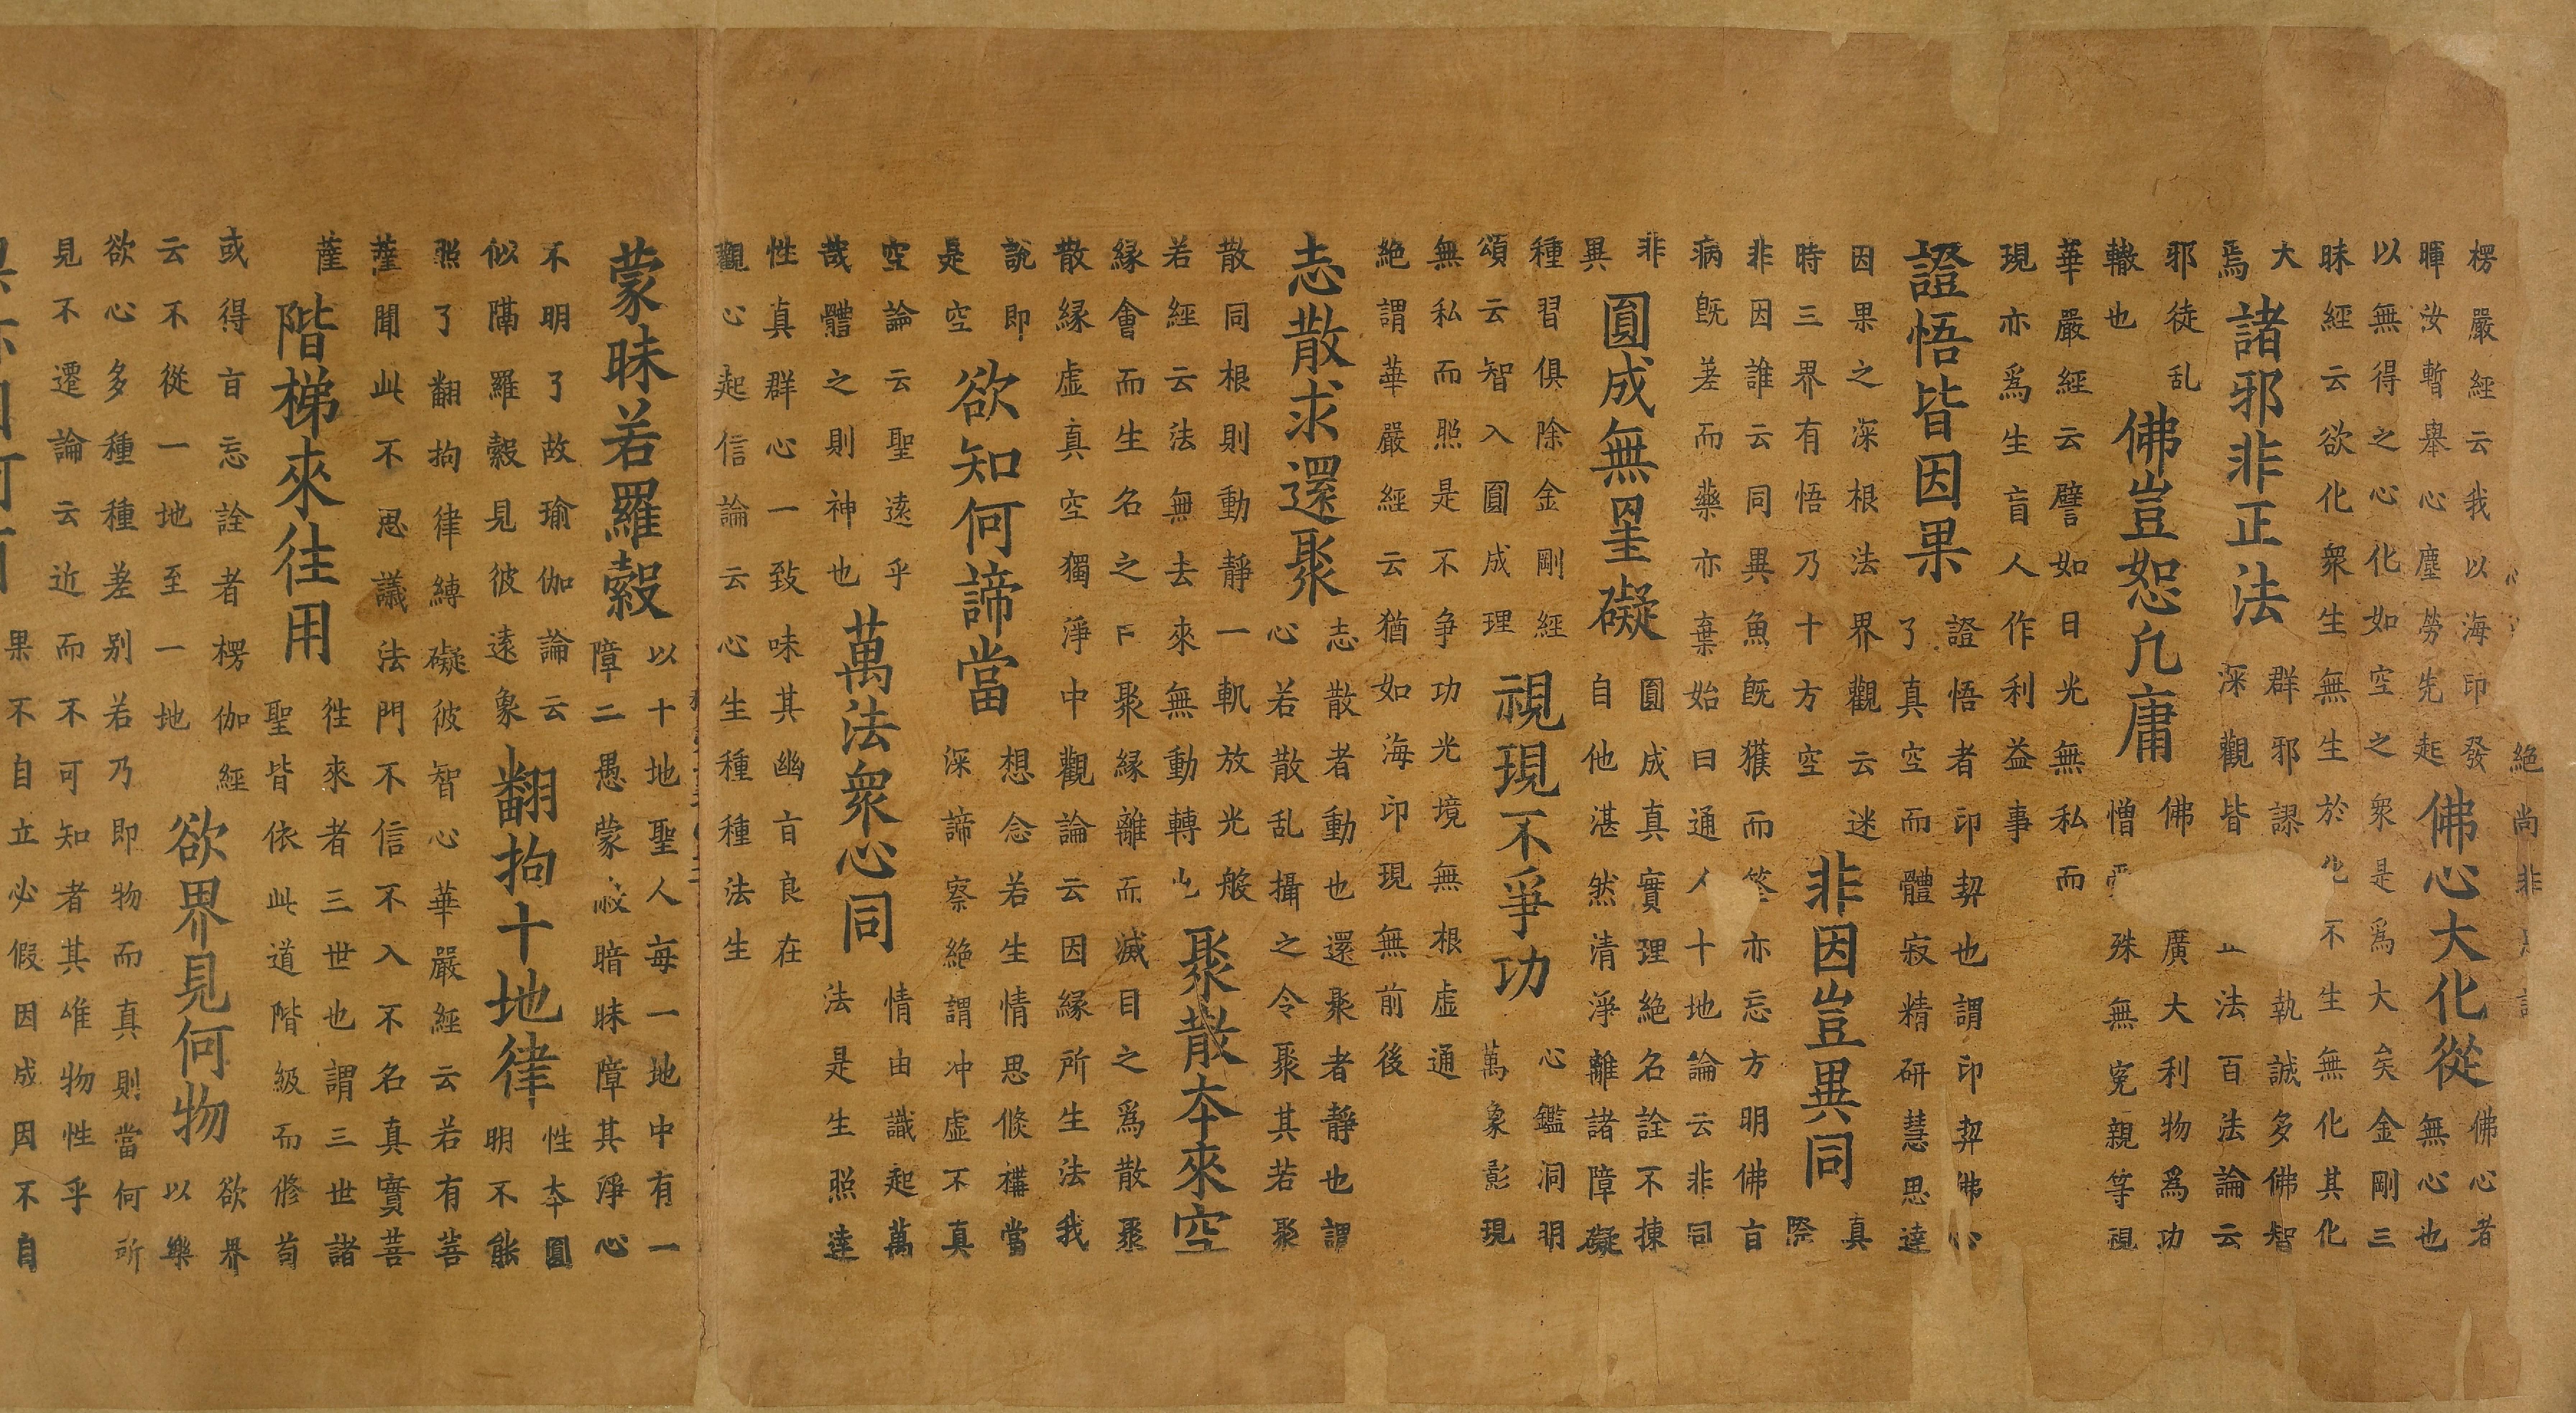 絶尚非是
楞嚴經云我以海印發
暉汝暫舉心塵勞先起
佛心大化從
佛心者
無心也
以無得之心化如空之衆是爲大矣金剛三
昧經云欲化衆生無生於化不生無化其化
大
焉
諸邪非正法
群邪謬執誠多佛智
深觀皆法百法論云
邪徒乱
轍也
佛豈恕凢庸
佛廣大利物爲功
憎殊無寃親等視
華嚴經云譬如日光無私而
現亦爲生盲人作利益事
證悟皆因果
證悟者印契也謂印契佛心
了真空而體寂精研慧思達
因果之深根法界觀云迷
時三界有悟乃十方空
非因豈異同
真
際
非因誰云同異魚旣獲而筌亦忘方明佛旨
病旣差而藥亦棄始曰通人十地論云非同
非
異
圓成無罣礙
圓成真實理絶名詮不揀
自他湛然清淨離諸障礙
種習俱除金剛經
頌云智入圓成理
視現不爭功
心鑑洞明
萬象彰現
無私而照是不争功光境無根虛通
絶謂華嚴經云猶如海印現無前後
志散求還聚
志散者動也還聚者靜也謂
心若散乱攝之令聚其若聚
散同根則動靜一軌放光般
若經云法無去來無動轉也
聚散本來空
縁會而生名之曰聚縁離而滅目之爲散聚
散縁虛真空獨淨中觀論云因縁所生法我
說即
是空
欲知何諦當
想念若生情思倐構當
深諦察絶謂冲虛不真
空論云聖遠乎
哉體之則神也
萬法衆心同
情由識起萬
法是生照達
性真群心一致味其幽旨良在
觀心起信論云心生種種法生
蒙昧若羅縠
以十地聖人每一地中有一
障二愚蒙蔽暗昧障其淨心
不明了故瑜伽論云
似隔羅縠見彼遠象
翻拘十地律
性本圓
明不能
照了翻拘律縛礙彼智心華嚴經云若有菩
薩聞此不思議法門不信不入不名真實菩
薩
階梯來往用
徃來者三世也謂三世諸
聖皆依此道階級而修苟
或得旨忘詮者楞伽經
云不從一地至一地
欲界見何物
欲界
以樂
欲心多種種差别若乃即物而真則當何所
見不遷論云近而不可知者其唯物性乎
果不自立必假因成因不自